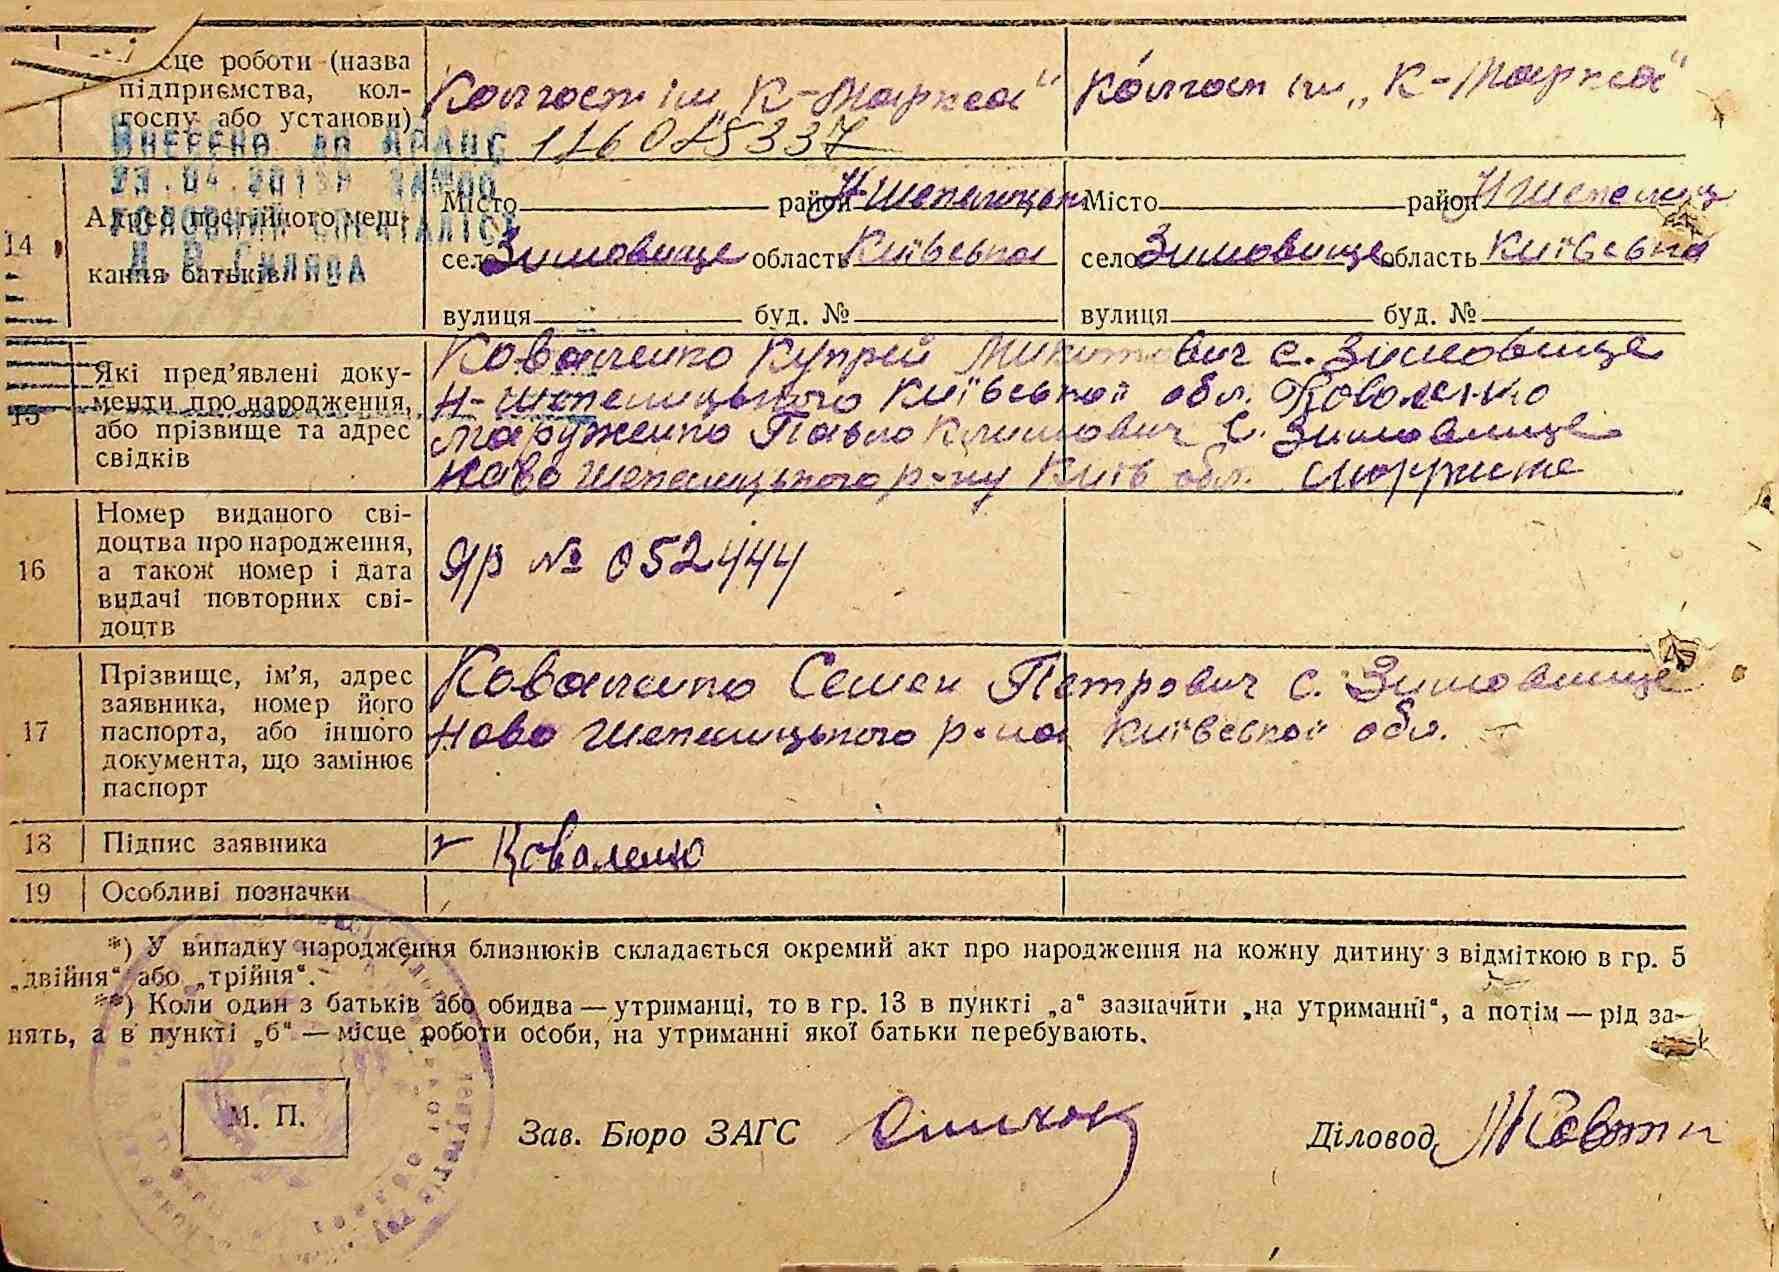 сце роботи (назва
підприємства, кол-
госпу або установи)
Колгосп ім „К-Маркса"
Колгосп ім „К-Маркса"
116025337
ВНЕСЕНО ДО ДРАЦС
ГОЛОВНИЙ СПЕЦІАЛІСТ
14
Адрес постійного меш-
кання батьків
Місто район Н-Шепелицьк
село Зимовище область Київська
вулиця буд. №
Місто район Н Шепелиц
село Зимовище область Київська
вулиця буд. №
15
Які пред'явлені доку-
менти про народження,
або прізвище та адрес
свідків
Коваленко Купрій Микитович с. Зимовище
Н-Шепелицького Київської обл. Коваленко
Павло Климович с. Зимовище
Ново Шепелицького р-ну Київ обл.
16
Номер виданого сві-
доцтва про народження,
а також номер і дата
видачі повторних сві-
доцтв
ЯР № 052444
17
Прізвище, ім'я, адрес
заявника, номер його
паспорта, або іншого
документа, що замінює
паспорт
Коваленко Семен Петрович с. Зимовище
Ново Шепелицького р-на Київської обл.
18
Підпис заявника
Коваленко
19
Особливі позначки
*) У випадку народження близнюків складається окремий акт про народження на кожну дитину з відміткою в гр. 5
„двійня" або „трійня".
**) Коли один з батьків або обидва — утриманці, то в гр. 13 в пункті „а" зазначити „на утриманні", а потім — рід за-
нять, а в пункті „б" — місце роботи особи, на утриманні якої батьки перебувають.
М. П.
Зав. Бюро ЗАГС
Діловод